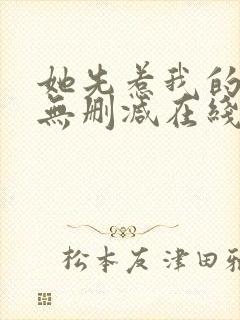 她先惹我的
無刪减在綫
松本友津田雅